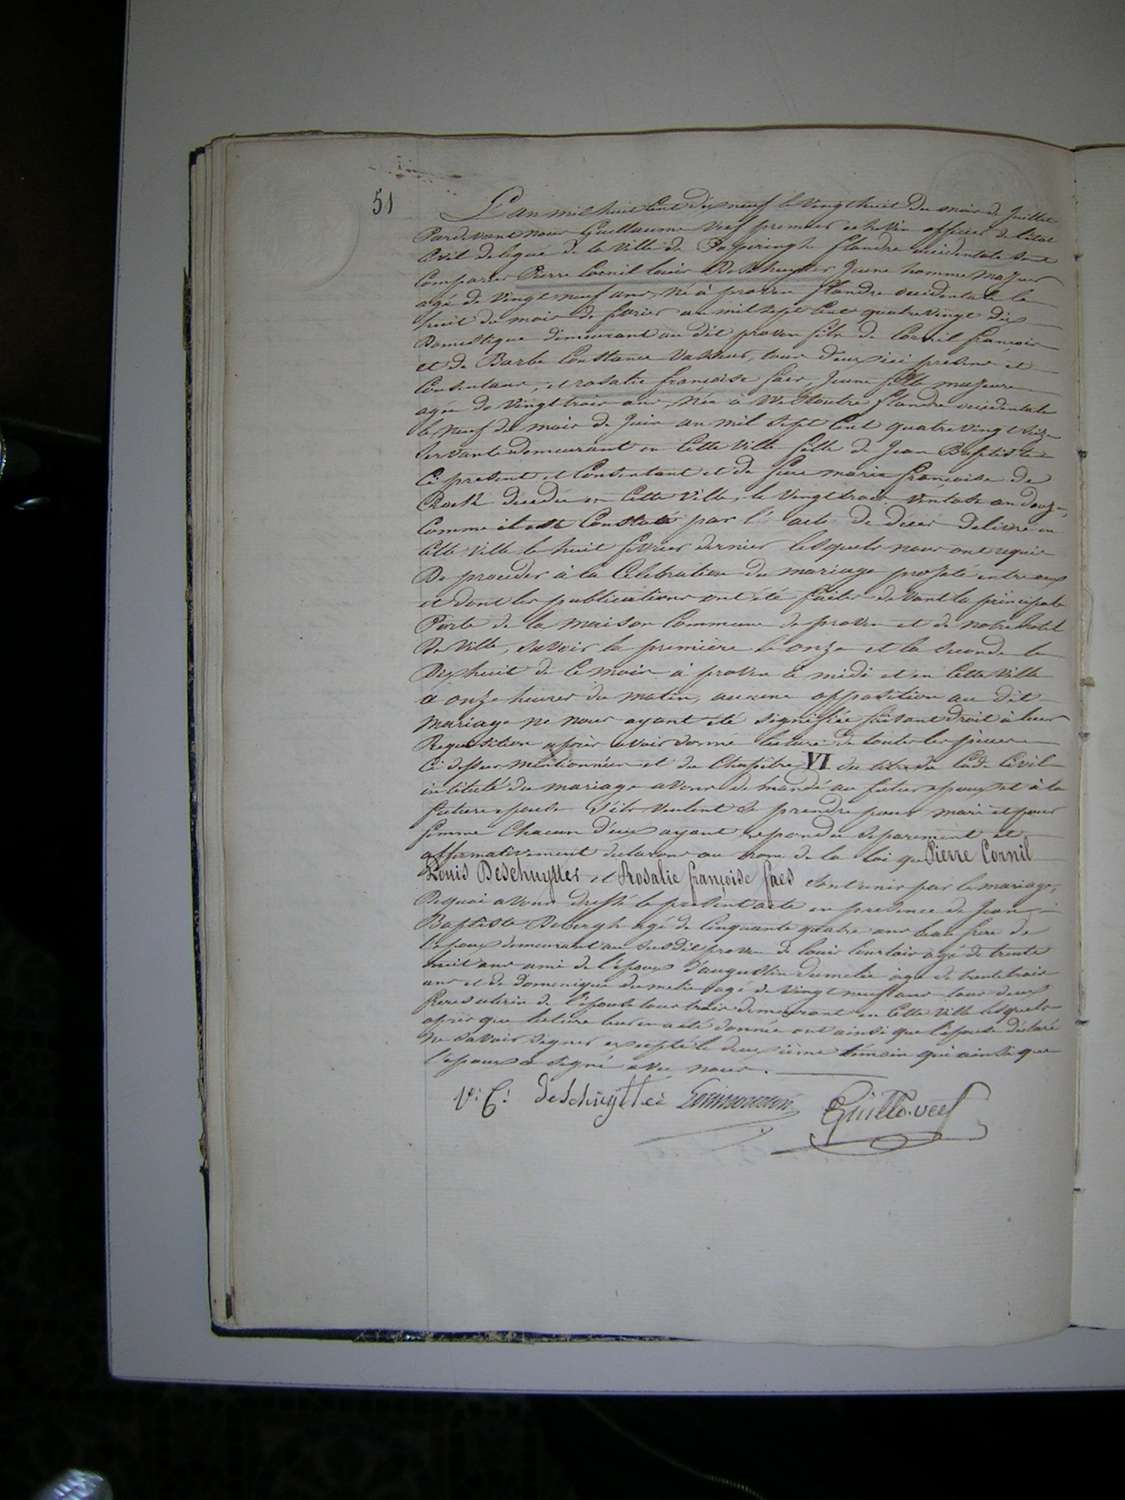 51
L'an mil huit Cent dix neuf le Vingt huit du mois de Juillet
Pardevant nous Guillaume Veef premier echevin officier de l'état
Civil delegué de la Ville de Poperinghe flandre occidentale sont
Comparus Pierre Cornil Louis DeSchuytter Jeune homme majeur
agé de Vingt neuf ans, Né à proven flandre occidentale le
huit du mois de fevrier an mil sept Cent quatre vingt dix
Domestique demeurant au dit proven fils de Cornil françois
et de Barbe Constance tous deux ici presens et
Consentans, et rosalie françoise faes, Jeune fille majeure
agée de Vingt trois ans, Née à Westoutre flandre occidentale
le Neuf du mois de Juin an mil Sept Cent quatre vingt Seize
Servante demeurant en Cette Ville fille de Jean Baptiste
Ci present et Consentant et de feue marie françoise de
decedée en Cette Ville, le Vingt trois Ventose an douze,
Comme il est Constaté par l'acte de deces delivré en
Cette Ville le huit fevrier dernier lesquels nous ont requis
De proceder à la Celebration du mariage projeté entre eux
et dont les publications ont été faites devant la principale
Porte de la maison Commune de proven et de notre hotel
De Ville, Savoir la première le onze et la seconde le
Dix huit de Ce mois à proven à midi et en Cette Ville
à onze heures du matin, aucune opposition au dit
Mariage ne nous ayant été Signifiée faisant droit à leur
Requisition après avoir donné lecture de toutes les pièces
Ci dessus mentionnées et du Chapitre VI du titre du Code Civil
intitulé du mariage avons demandé au futur epoux et à la
future epouse S'ils veulent Se prendre pour mari et pour
femme Chacun d'eux ayant repondu Separement et
affirmativement declarons au nom de la loi que Pierre Cornil
Louis DeSchuytter et Rosalie françoise faes Sont unis par le mariage,
De quoi avons dressé le present acte en presence de Jean
Baptiste agé de Cinquante quatre ans beau frere de
l'epoux demeurant au Susdit proven de louis agé de trente
huit ans ami de l'epoux d'augustin agé de trente trois
ans et de Dominique agé de Vingt neuf ans tous deux
freres uterin de l'epouse tous trois demeurant en Cette Ville lesquels
après que lecture leur en a été donnée ont ainsi que l'epouse declaré
ne Savoir Signer excepté le deuxième témoin qui ainsi que
l'epoux a Signé avec nous.
deschuytter Guille. veef